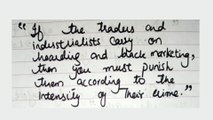 "If the traders and
industrialists carry on
hoarding and black marketing,
then you must punish
them according to the
intensity of their crime."